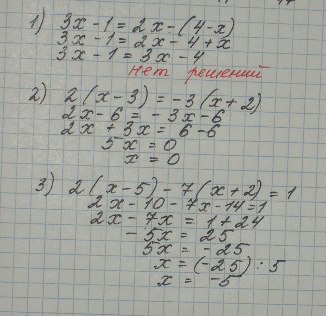 1) 3x - 1 = 2x - (4 - x)
3x - 1 = 2x - 4 + x
3x - 1 = 3x - 4
нет решений
2) 2(x - 3) = -3(x + 2)
2x - 6 = - 3x - 6
2x + 3x = 6 - 6
5x = 0
x = 0
3) 2(x - 5) - 7(x + 2) = 1
2x - 10 - 7x - 14 = 1
2x - 7x = 1 + 24
- 5x = 25
5x = - 25
x = (-25) : 5
x = -5